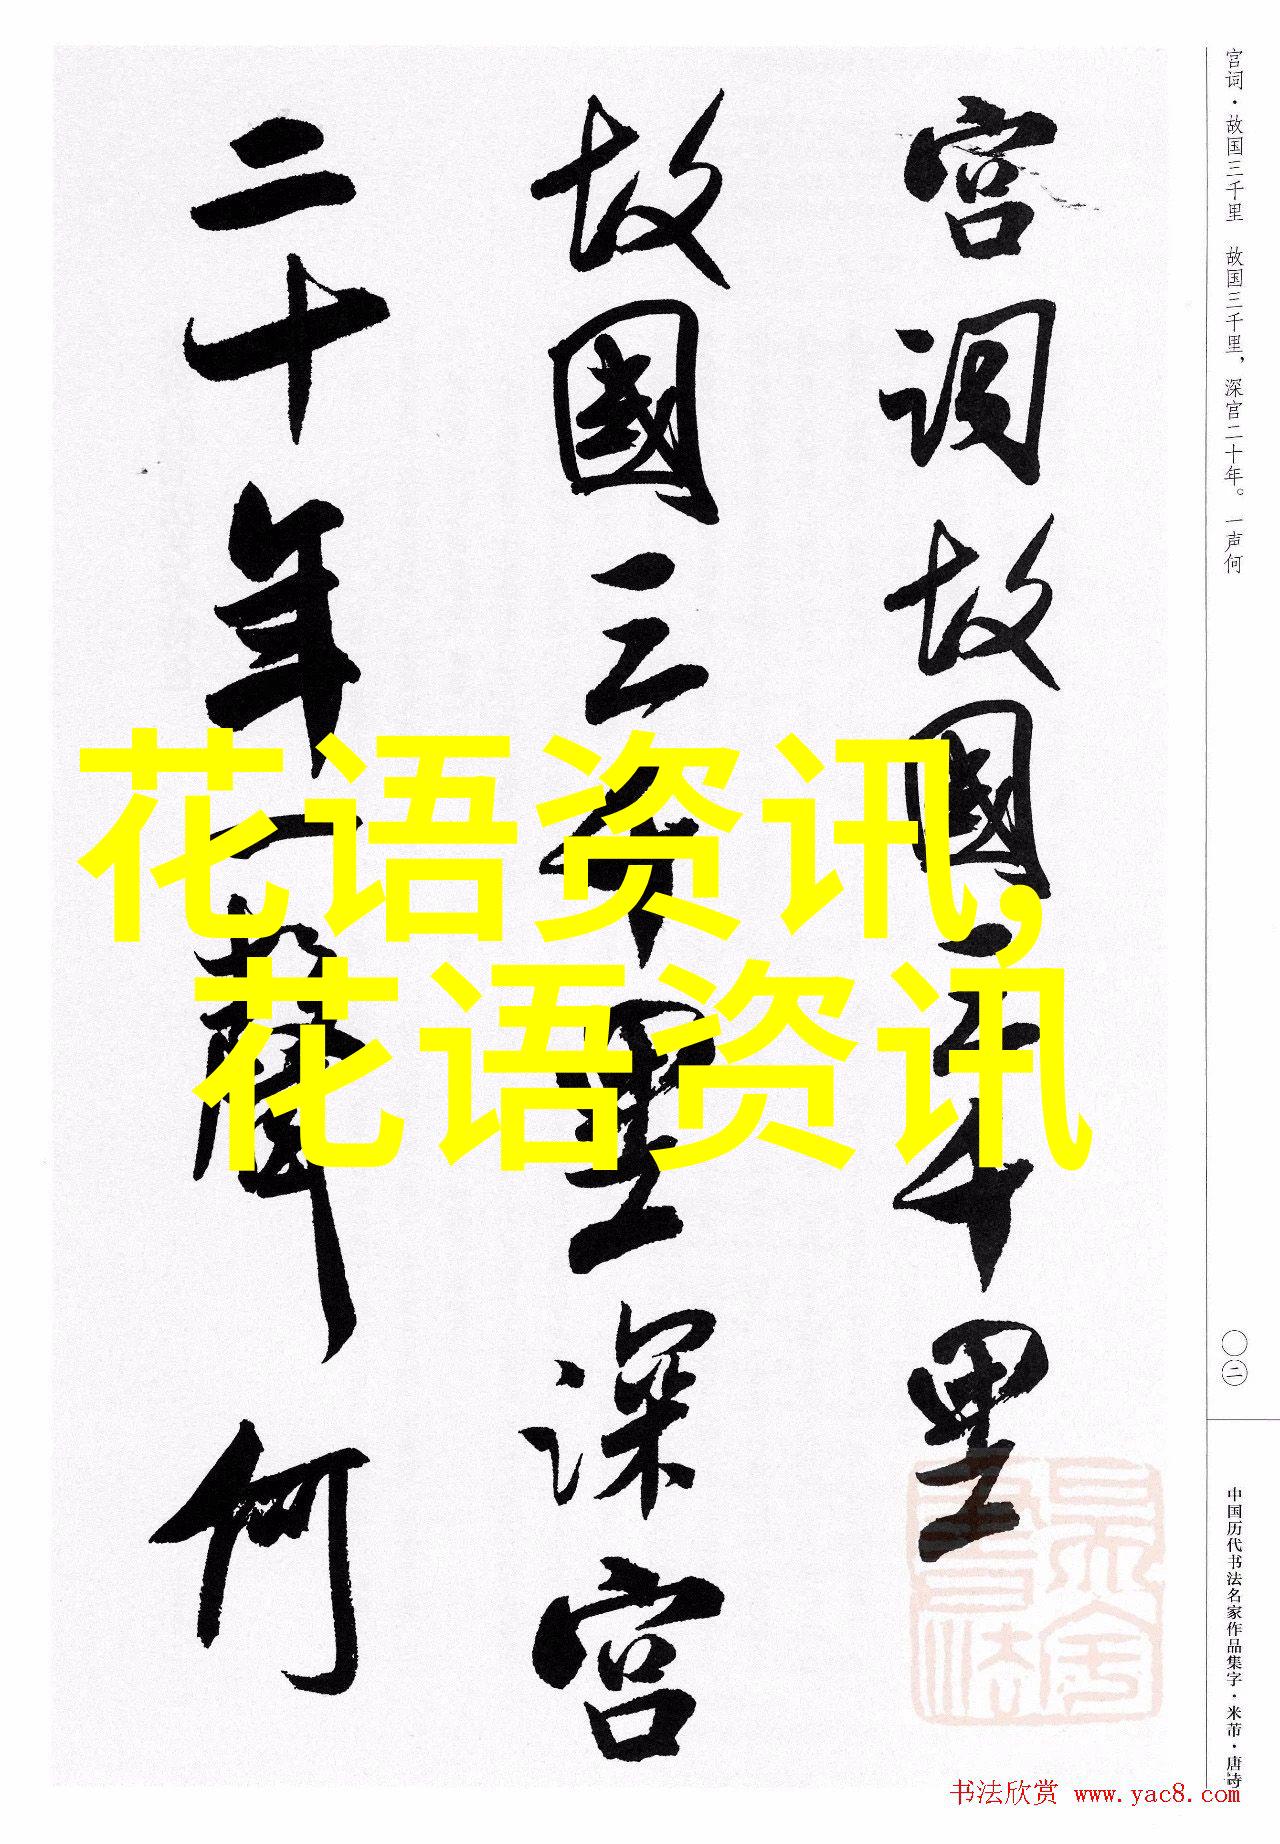 宫词·故国三千里　故国三千里，深宫二十年。一声何
宫词故國三千里
故國三千里深宫
二十年一聲何
花语资讯，
花语资讯
〇二
中国历代书法名家作品集字·米芾·唐诗
书法欣赏 www.yac8.com